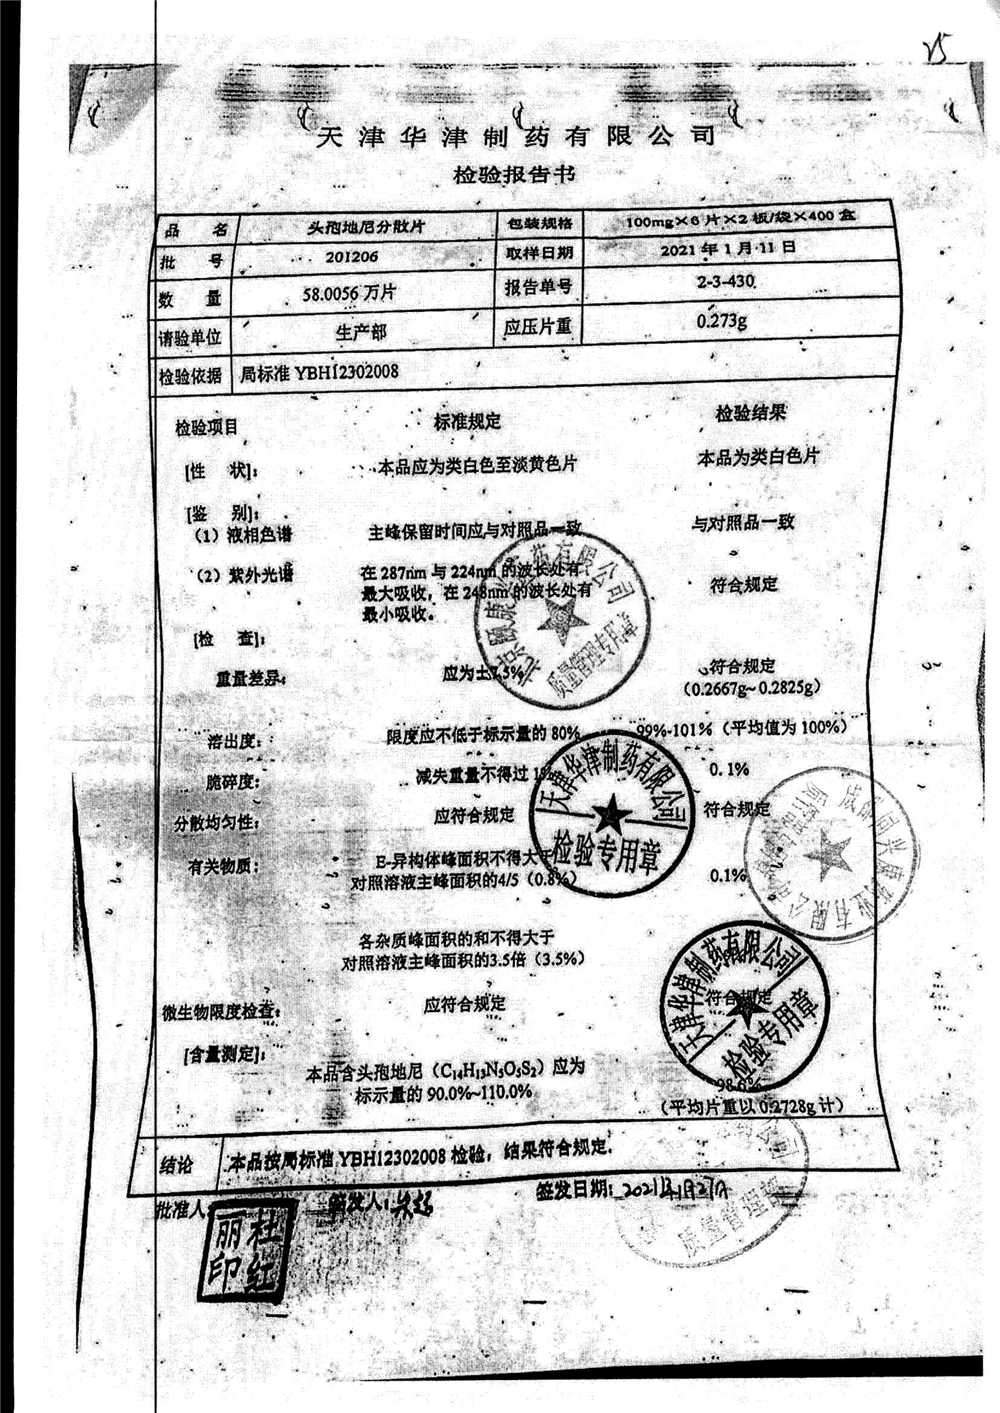 25
天津华津制药有限公司
检验报告书
品 名 头孢地尼分散片 包装规格 100mg×6片×2板/袋×400盒
批 号 201206 取样日期 2021年1月11日
数 量 58.0056万片 报告单号 2-3-430
请验单位 生产部 应压片重 0.273g
检验依据 局标准YBH12302008
检验项目 标准规定 检验结果
[性 状]: 本品应为类白色至淡黄色片 本品为类白色片
[鉴 别]:
(1)液相色谱 主峰保留时间应与对照品一致 与对照品一致
(2)紫外光谱 在287nm与224nm的波长处有
最大吸收，在248nm的波长处有
最小吸收。 符合规定
[检 查]:
重量差异: 应为±7.5% 符合规定
(0.2667g~0.2825g)
溶出度: 限度应不低于标示量的80% 99%-101%（平均值为100%）
脆碎度: 减失重量不得过1% 0.1%
分散均匀性: 应符合规定 符合规定
有关物质: E-异构体峰面积不得大于
对照溶液主峰面积的4/5（0.8%） 0.1%
各杂质峰面积的和不得大于
对照溶液主峰面积的3.5倍（3.5%）
微生物限度检查: 应符合规定 符合规定
[含量测定]:
本品含头孢地尼（C₁₄H₁₃N₅O₅S₂）应为 98.6%
标示量的90.0%~110.0% （平均片重以0.2728g计）
结论 本品按局标准YBH12302008检验，结果符合规定.
批准人: 签发人: 签发日期: 2021年1月27日
杜红丽印
质量管理专用章
天津华津制药有限公司
检验专用章
天津华津制药有限公司
检验专用章
质量管理部